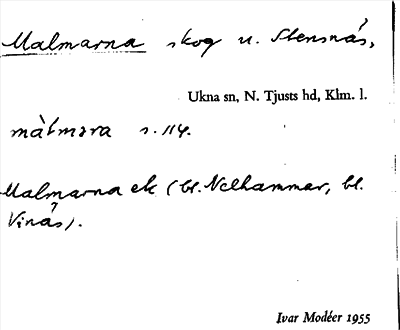 Malmarna skog u. Stensnäs,
Ukna sn, N. Tjusts hd, Klm. l.
màlmara s. 114.
Malmarna ek (bl. Nelhammar, bl.
Vinäs).
Ivar Modéer 1955